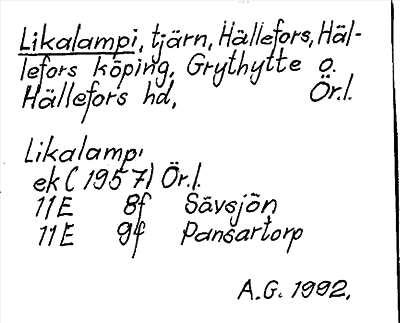 Likalampi, tjärn, Hällefors, Häl-
lefors köping, Grythytte o.
Hällefors hd, Ör.l.
Likalampi
ek (1957) Ör.l.
11E 8f Sävsjön
11E 9f Pansartorp
A.G. 1992.